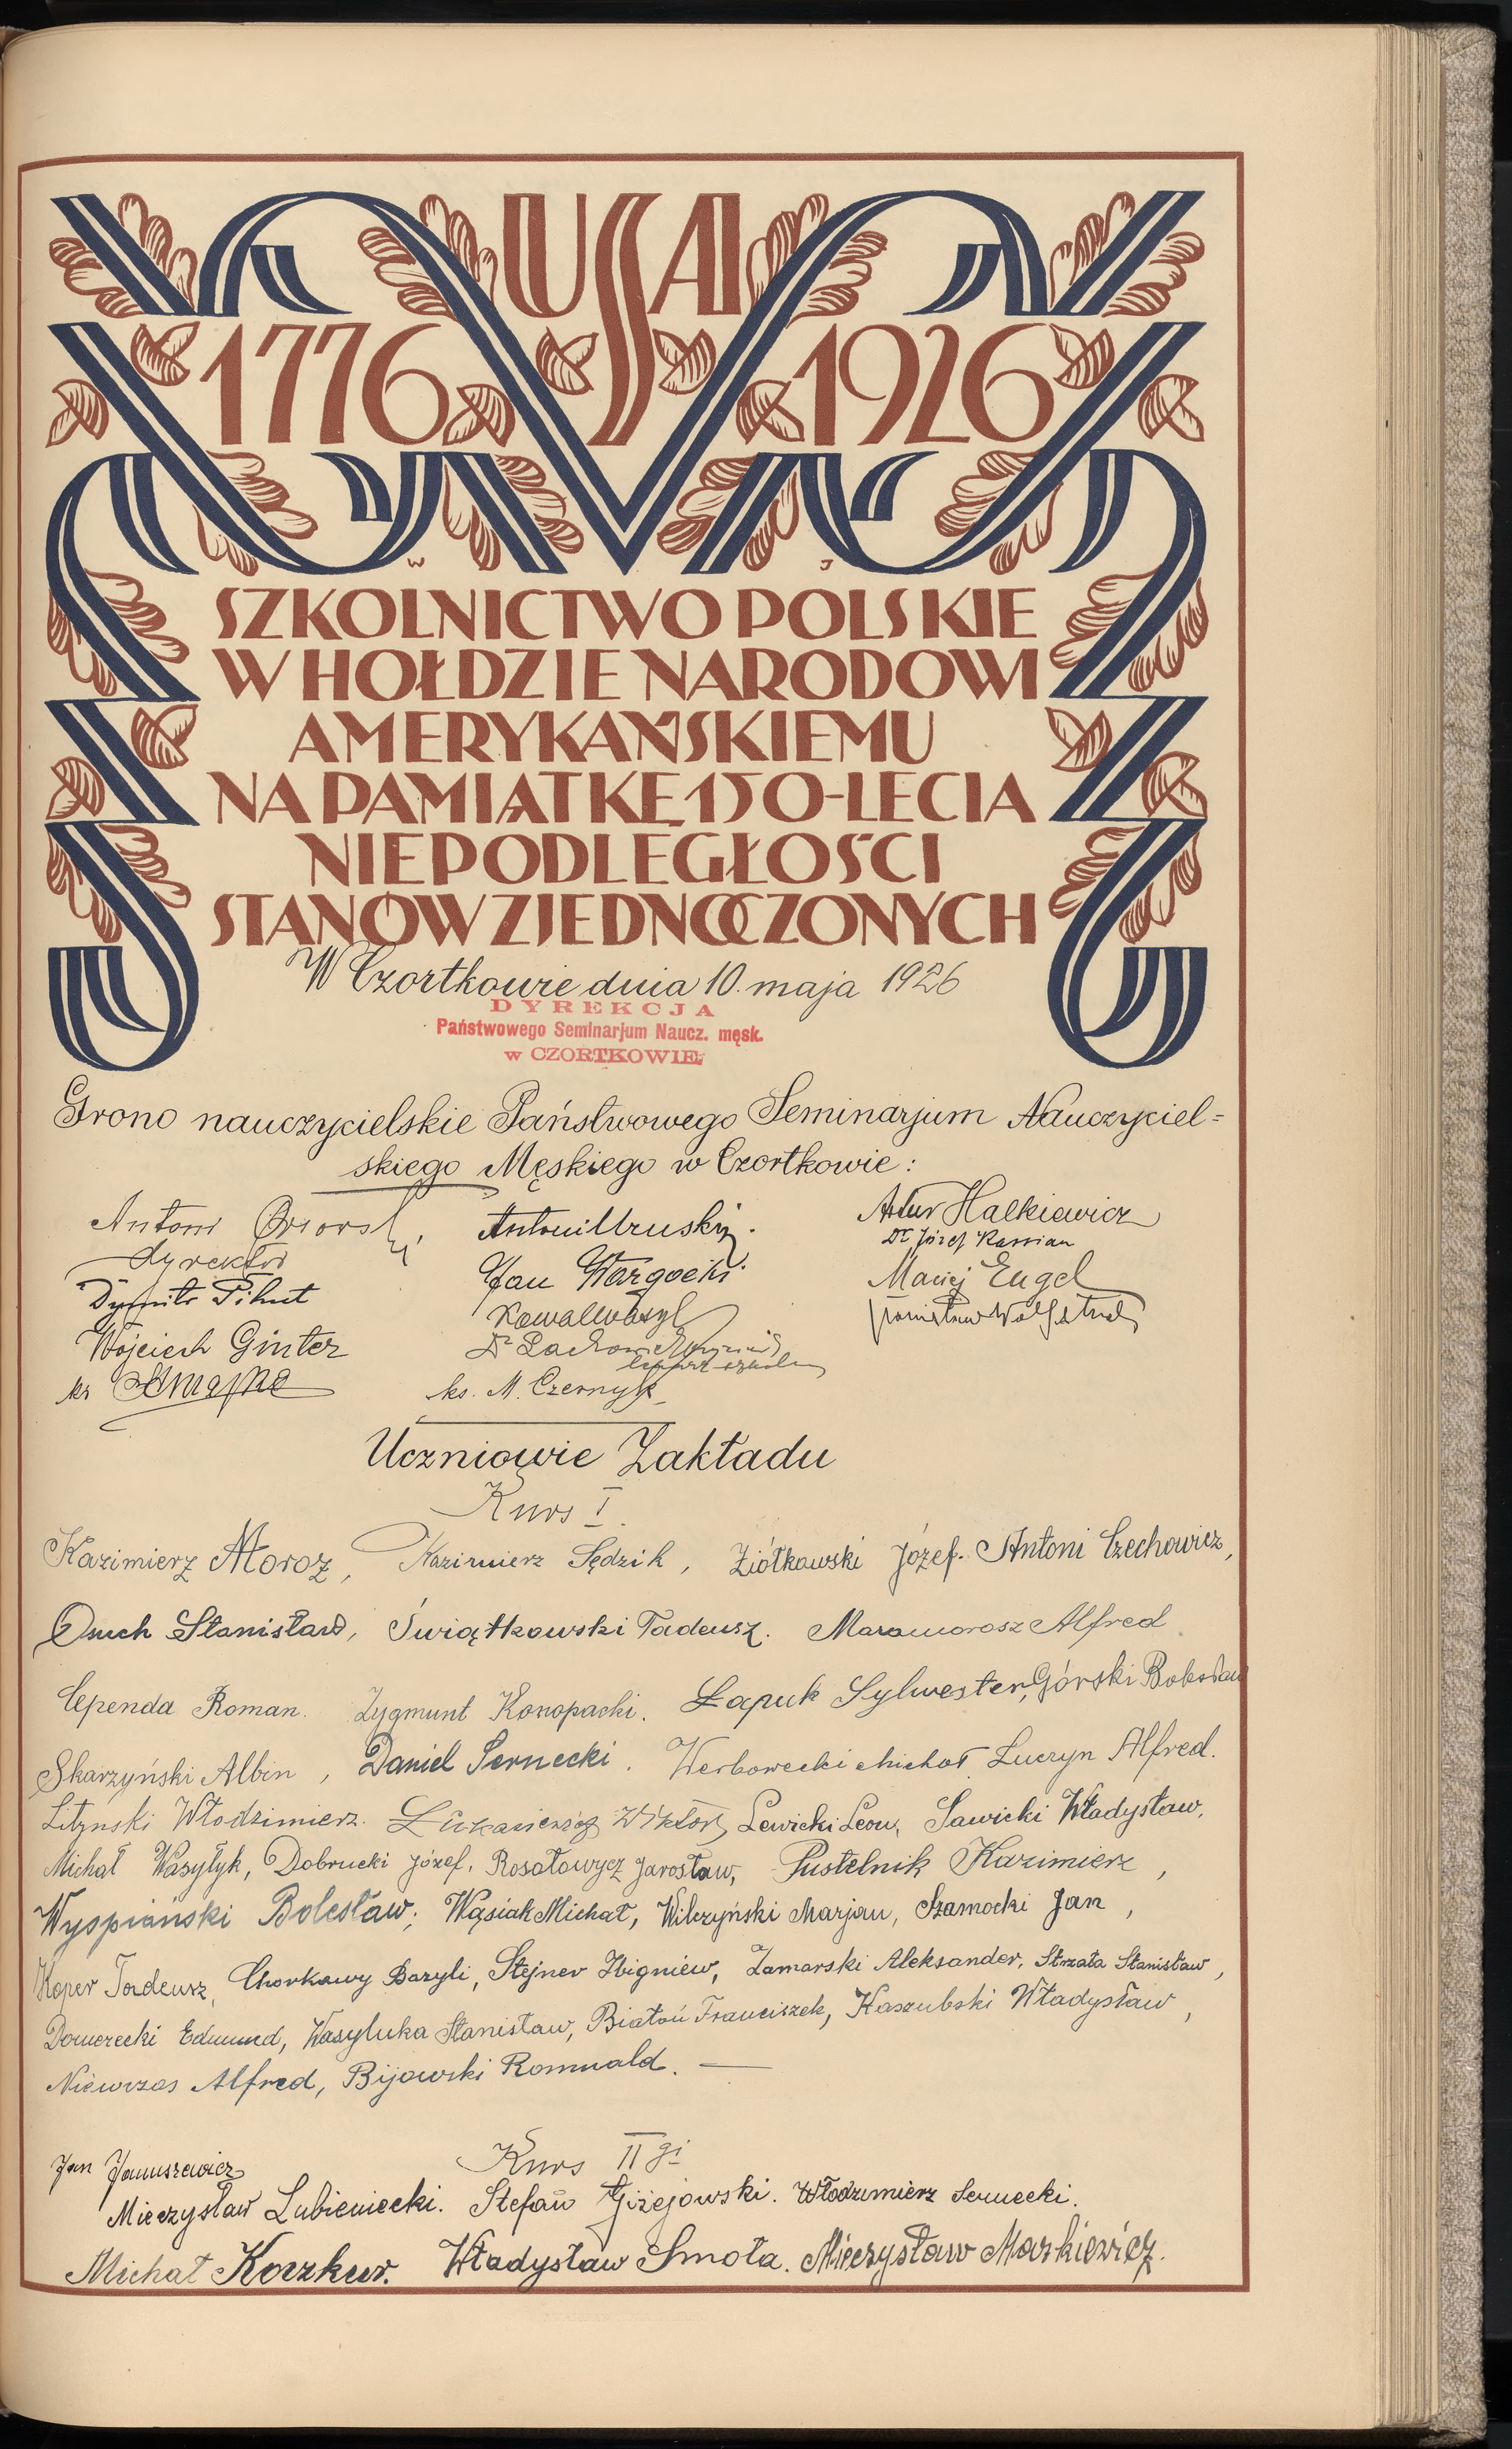 USA
1776 1926
W J
SZKOLNICTWO POLSKIE
W HOŁDZIE NARODOWI
AMERYKAŃSKIEMU
NA PAMIĄTKĘ 150-LECIA
NIEPODLEGŁOŚCI
STANÓW ZJEDNOCZONYCH
W Czortkowie dnia 10. maja 1926
DYREKCJA
Państwowego Seminarjum Naucz. męsk.
w CZORTKOWIE
Grono nauczycielskie Państwowego Seminarjum Nauczyciel=
skiego Męskiego w Czortkowie:
Antoni
dyrektor
Dymitr Pihut
Wojciech Ginter
ks
Antoni Uruski.
Jan Wargocki
Kowal Wasyl
Dr
ks. M. Czernyk
Artur Halkiewicz
Dr Józef Kassian
Maciej Engel
Stanisław
Uczniowie Zakładu
Kurs I.
Kazimierz Moroz, Kazimierz Sędzik, Ziółkowski Józef. Antoni Czechowicz,
Onich Stanisław, Świątkowski Tadeusz. Maramorosz Alfred
Cependa Roman. Zygmunt Konopacki. Łapuk Sylwester, Górski Bolesław
Skarzyński Albin, Daniel Sernecki. Werbowecki Michał Luczyn Alfred.
Litynski Włodzimierz. Łukasiewicz Wiktor, Lewicki Leon, Sawicki Władysław,
Michał Wasyłyk, Dobrucki Józef, Rosołowycz Jarosław, Pustelnik Kazimierz,
Wyspiański Bolesław, Wąsiak Michał, Wilczyński Marjan, Szamocki Jan,
Koper Tadeusz, Chorkawy Bazyli, Stejner Zbigniew, Zamarski Aleksander, Strzała Stanisław,
Domerecki Edmund, Wasyluka Stanisław, Białoń Franciszek, Kaszubski Władysław,
Niewrzas Alfred, Bijowski Romuald. —
Kurs II gi
Jan Januszewicz
Mieczysław Lubieniecki. Stefan Giżejowski. Włodzimierz Sernecki.
Michał Koczkur. Władysław Smoła. Mieczysław Markiewicz.